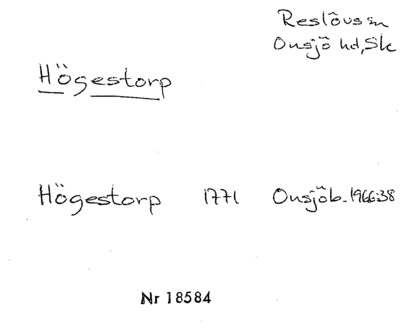 Restöus sn
Onsjö hd, Sk
Högestorp
Högestorp 1771 Onsjöb. 1966:38
Nr 18584